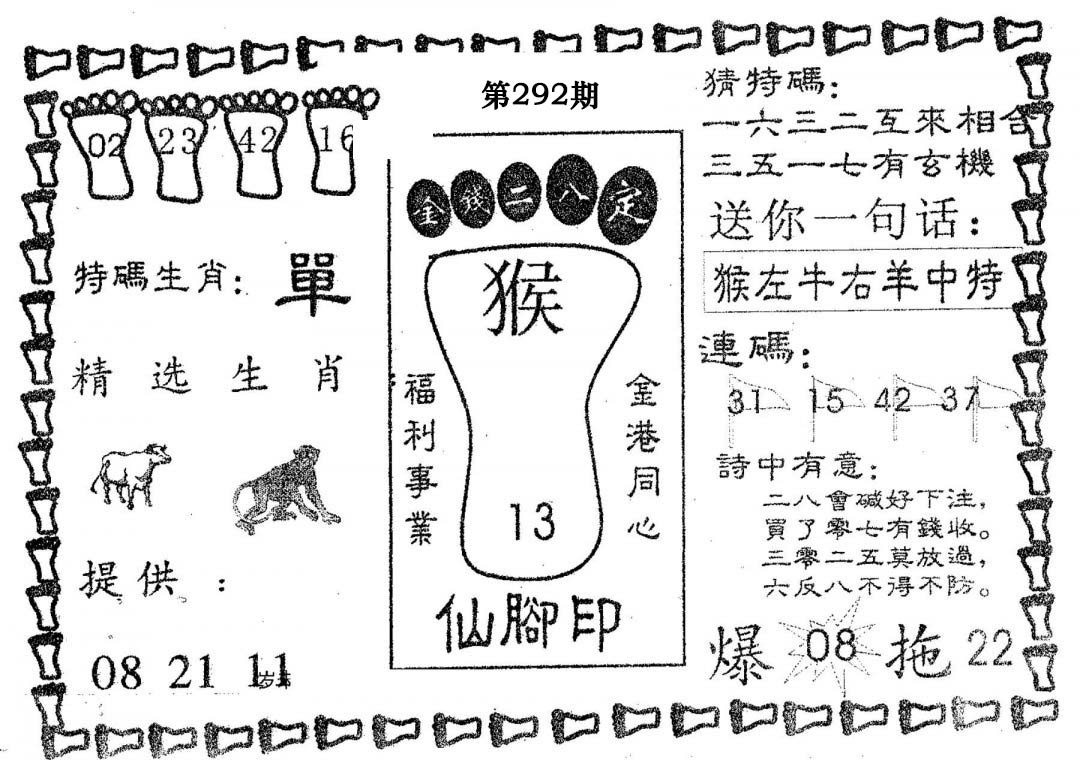 第292期
02 23 42 16
特碼生肖：單
精选生肖
提供：
08 21 11
金錢二八定
猴
福利事業
金港同心
13
仙腳印
猜特碼：
一六三二互來相合
三五一七有玄機
送你一句话：
猴左牛右羊中特
連碼：
31 15 42 37
詩中有意：
二八會碱好下注，
買了零七有錢收。
三零二五莫放過，
六反八不得不防。
爆 08 拖 22